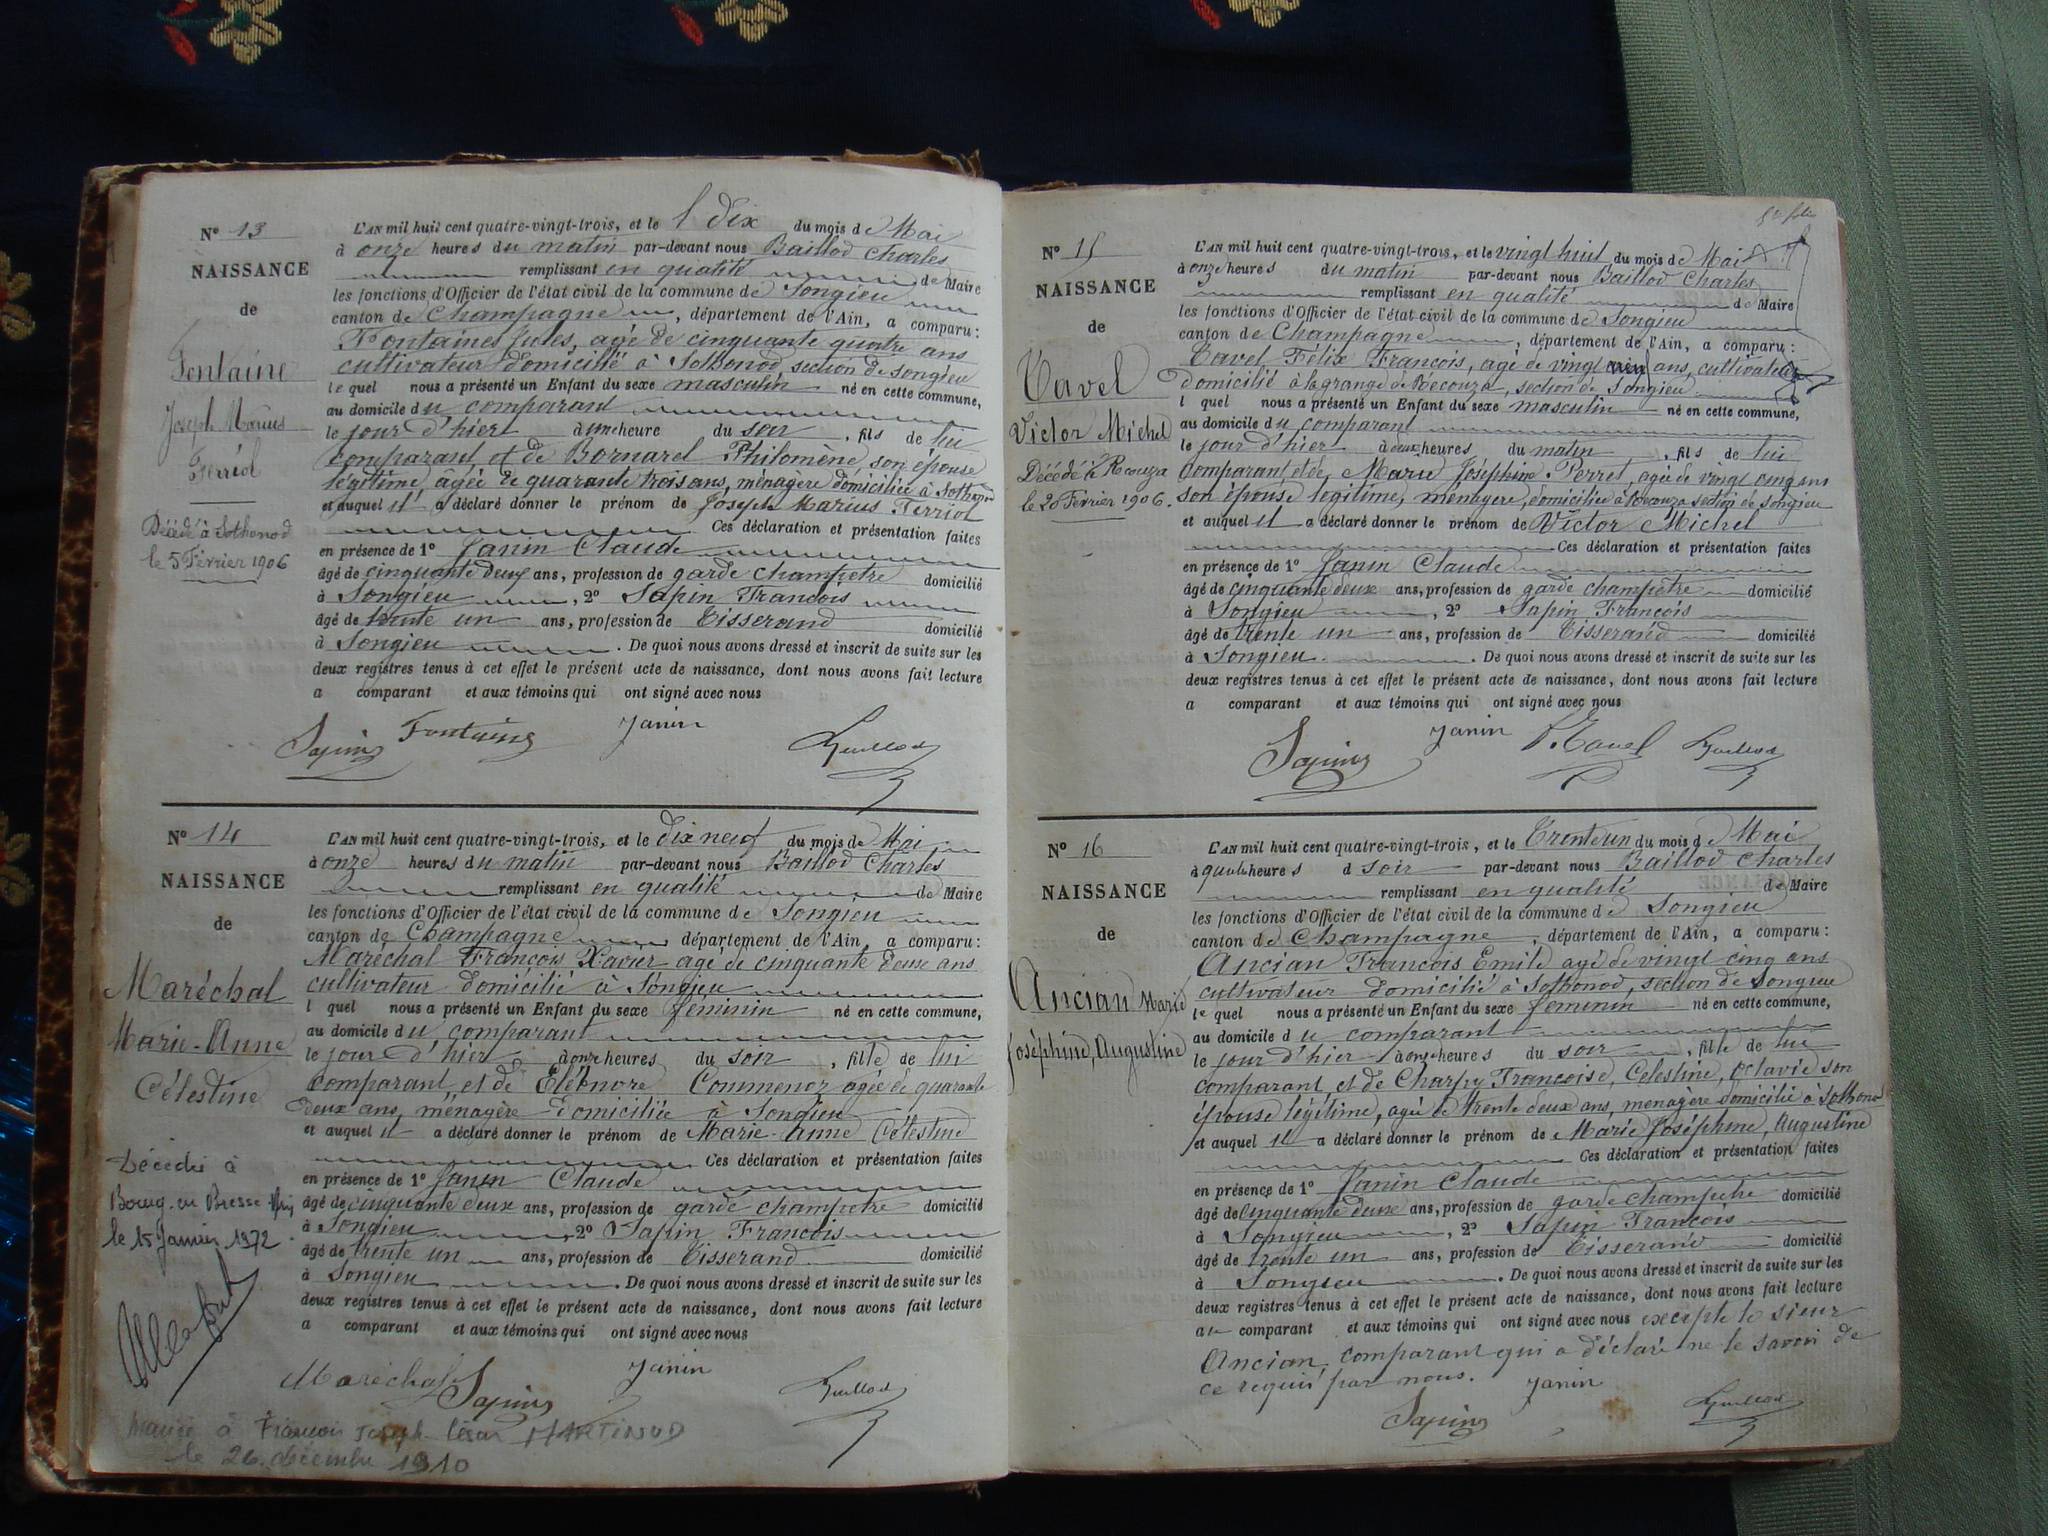 N° 13
NAISSANCE
de
Fontaine
Joseph Marius
Ferréol
Décédé à Sothonod
le 5 Février 1906
L'AN mil huit cent quatre-vingt-trois, et le dix du mois de Mai
à onze heures du matin par-devant nous Baillod Charles
remplissant en qualité de Maire
les fonctions d'Officier de l'état civil de la commune de Songieu
canton de Champagne, département de l'Ain, a comparu :
Fontaine Jules, agé de cinquante quatre ans
cultivateur domicilié à Sothonod section de Songieu
le quel nous a présenté un Enfant du sexe masculin né en cette commune,
au domicile du comparant
le jour d'hier à une heure du soir, fils de lui
comparant et de Bornarel Philomène son épouse
légitime, âgée de quarante trois ans, ménagère domiciliée à Sothonod
et auquel il a déclaré donner le prénom de Joseph Marius Ferriol
Ces déclaration et présentation faites
en présence de 1° Janin Claude
âgé de cinquante deux ans, profession de garde champetre domicilié
à Songieu, 2° Sapin Francois
âgé de trente un ans, profession de Tisserand domicilié
à Songieu. De quoi nous avons dressé et inscrit de suite sur les
deux registres tenus à cet effet le présent acte de naissance, dont nous avons fait lecture
a comparant et aux témoins qui ont signé avec nous
Sapin Fontaine Janin Baillod
N° 14
NAISSANCE
de
Maréchal
Marie-Anne
Célestine
Décédée à
Bourg-en-Bresse Ain
le 15 Janvier 1972
L'AN mil huit cent quatre-vingt-trois, et le dix neuf du mois de Mai
à onze heures du matin par-devant nous Baillod Charles
remplissant en qualité de Maire
les fonctions d'Officier de l'état civil de la commune de Songieu
canton de Champagne département de l'Ain, a comparu :
Maréchal François Xavier agé de cinquante deux ans
cultivateur domicilié à Songieu
l quel nous a présenté un Enfant du sexe féminin né en cette commune,
au domicile du comparant
le jour d'hier à onze heures du soir, fille de lui
comparant et de Eléonore Commenoz agée de quarante
deux ans, ménagère domiciliée à Songieu
et auquel il a déclaré donner le prénom de Marie-Anne Célestine
Ces déclaration et présentation faites
en présence de 1° Janin Claude
âgé de cinquante deux ans, profession de garde champetre domicilié
à Songieu, 2° Sapin Francois
âgé de trente un ans, profession de Tisserand domicilié
à Songieu. De quoi nous avons dressé et inscrit de suite sur les
deux registres tenus à cet effet le présent acte de naissance, dont nous avons fait lecture
a comparant et aux témoins qui ont signé avec nous
Maréchal Sapin Janin Baillod
Mariée à François Joseph César MARTINOD
le 26 décembre 1910
N° 15
NAISSANCE
de
Tavel
Victor Michel
Décédé à Recouza
le 20 Février 1906.
L'AN mil huit cent quatre-vingt-trois, et le vingt huit du mois de Mai
à onze heures du matin par-devant nous Baillod Charles
remplissant en qualité de Maire
les fonctions d'Officier de l'état civil de la commune de Songieu
canton de Champagne, département de l'Ain, a comparu :
Tavel Félix François, agé de vingt neuf ans, cultivateur
domicilié à la grange de Récouza, section de Songieu
l quel nous a présenté un Enfant du sexe masculin né en cette commune,
au domicile du comparant
le jour d'hier à deux heures du matin, fils de lui
comparant, et de Marie Joséphine Perret, agée de vingt cinq ans
son épouse legitime, ménagère, domiciliée à Récouza section de Songieu
et auquel il a déclaré donner le prénom de Victor Michel
Ces déclaration et présentation faites
en présence de 1° Janin Claude
âgé de cinquante deux ans, profession de garde champetre domicilié
à Songieu, 2° Sapin Francois
âgé de trente un ans, profession de Tisserand domicilié
à Songieu. De quoi nous avons dressé et inscrit de suite sur les
deux registres tenus à cet effet le présent acte de naissance, dont nous avons fait lecture
a comparant et aux témoins qui ont signé avec nous
Sapin Janin Tavel Baillod
N° 16
NAISSANCE
de
Ancian Marie
Joséphine, Augustine
L'AN mil huit cent quatre-vingt-trois, et le Trente un du mois de Mai
à quatre heures d soir par-devant nous Baillod Charles
remplissant en qualité de Maire
les fonctions d'Officier de l'état civil de la commune de Songieu
canton de Champagne, département de l'Ain, a comparu :
Ancian Francois Emile agé de vingt cinq ans
cultivateur domicilié à Sothonod, section de Songieu
le quel nous a présenté un Enfant du sexe feminin né en cette commune,
au domicile du comparant
le jour d'hier à onze heures du soir, fille de lui
comparant, et de Charpy Francoise, Celestine, Octavie son
épouse légitime, agée de trente deux ans, menagere domicilié à Sothonod
et auquel il a déclaré donner le prénom de Marie Joséphine, Augustine
Ces déclaration et présentation faites
en présence de 1° Janin Claude
âgé de cinquante deux ans, profession de garde champetre domicilié
à Songieu, 2° Sapin Francois
âgé de trente un ans, profession de Tisserand domicilié
à Songieu. De quoi nous avons dressé et inscrit de suite sur les
deux registres tenus à cet effet le présent acte de naissance, dont nous avons fait lecture
au comparant et aux témoins qui ont signé avec nous excepté le sieur
Ancian, comparant qui a déclaré ne le savoir de
ce requis par nous.
Janin
Sapin Baillod